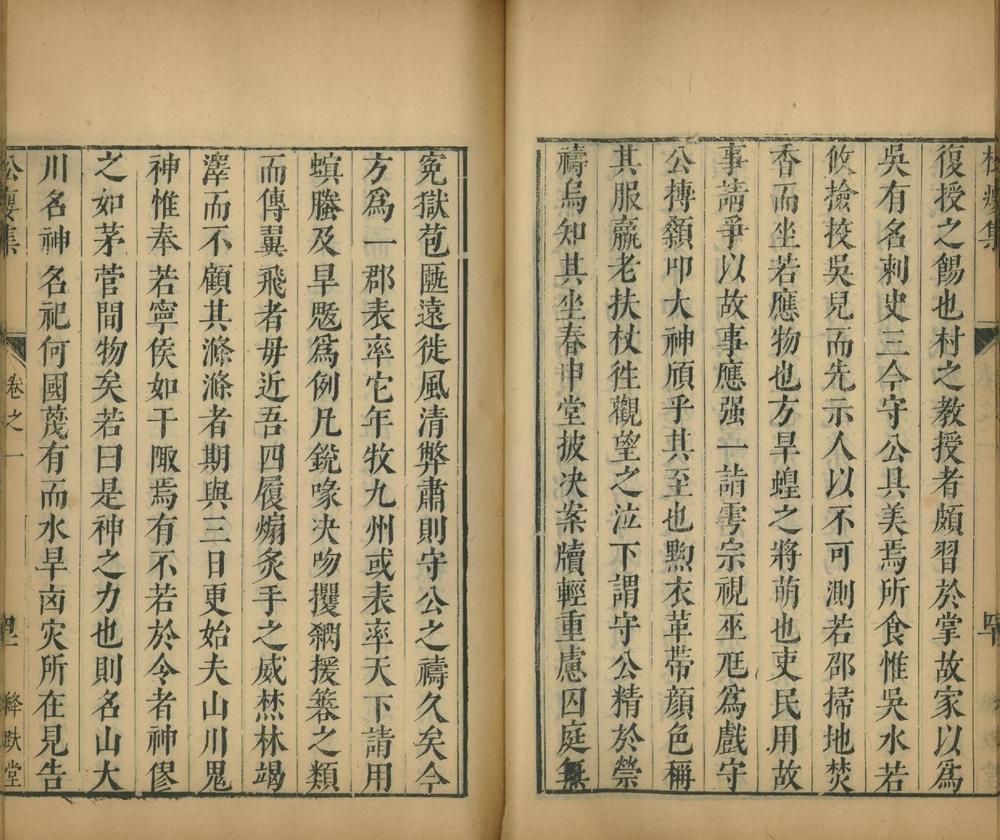 復授之餳也村之教授者頗習於掌故家以為
吳有名刺史三今守公具美焉所食惟吳水若
攸撿挍吳兒而先示人以不可測若邵掃地焚
香而坐若應物也方旱蝗之將萌也吏民用故
事請爭以故事應强一詣雩宗視巫尫為戲守
公摶顙叩大神頎乎其至也㸃衣革帶顔色稱
其服羸老扶杖徃觀望之泣下謂守公精於禜
禱烏知其坐春申堂披决案牘輕重慮囚庭無
寃獄苞匭遠徙風清弊肅則守公之禱久矣今
方為一郡表率它年牧九州或表率天下請用
螟螣及旱魃為例凡銳喙决吻攫網援簺之類
而傳翼飛者毋近吾四履煽炙手之威焚林竭
澤而不顧其滌滌者期與三日更始夫山川鬼
神惟奉若寧侯如干陬焉有不若於令者神僇
之如茅菅間物矣若曰是神之力也則名山大
川名神名祀何國蔑有而水旱凶灾所在見告
卷之一